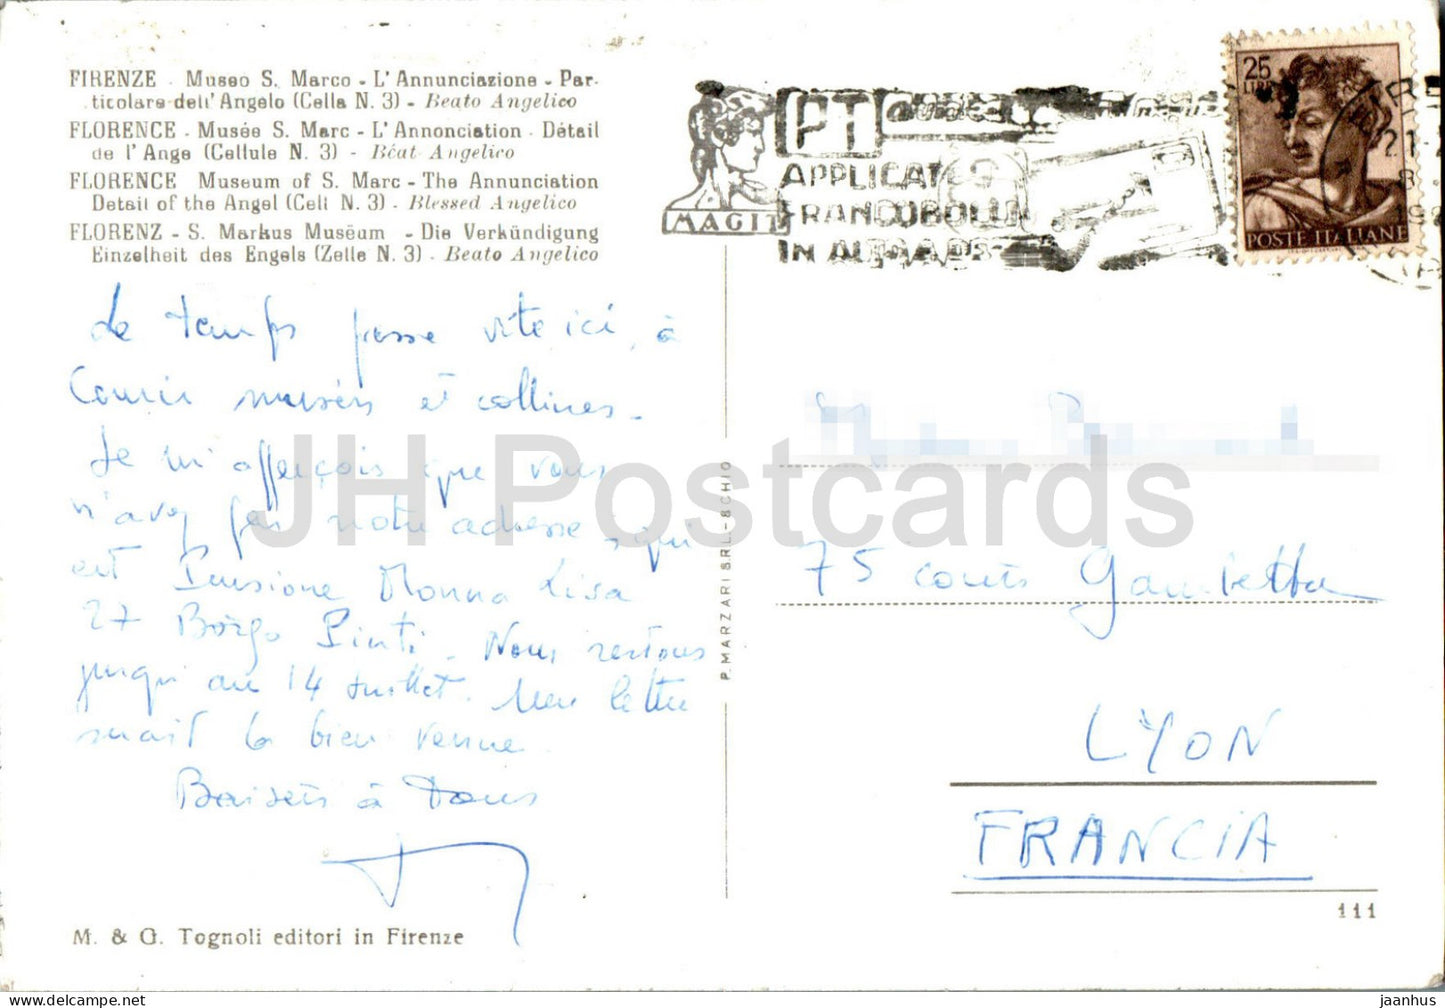 FIRENZE - Museo S. Marco - L' Annunciazione - Par-
ticolare dell' Angelo (Cella N. 3) - Beato Angelico
FLORENCE - Musée S. Marc - L' Annonciation - Détail
de l' Ange (Cellule N. 3) - Béat Angelico
FLORENCE Museum of S. Marc - The Annunciation
Detail of the Angel (Cell N. 3) - Blessed Angelico
FLORENZ - S. Markus Museum - Die Verkündigung
Einzelheit des Engels (Zelle N. 3) - Beato Angelico
Le temps passe vite ici, à
courir musées et collines.
Je m'aperçois que vous
n'avez pas notre adresse, qui
est Pensione Monna Lisa
27 Borgo Pinti. Nous restons
jusqu'au 14 Juillet. Une lettre
serait la bien venue.
Baisers à tous
M. & G. Tognoli editori in Firenze
P. MARZARI S.R.L. - SCHIO
MAGIT
PT
APPLICATE
FRANCOBOLLI
IN ALTO A DS
25
LIRE
POSTE ITALIANE
75 cours Gambetta
LYON
FRANCIA
111
JH Postcards
jaanhus